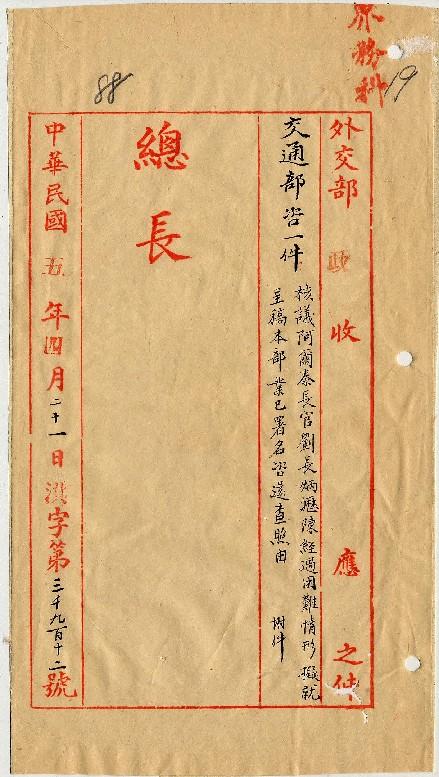 界務科
19
88
外交部 政 收 應 之件
交通部咨一件 核議阿爾泰長官劉長炳瀝陳經過困難情形擬就
呈稿本部業已署名咨送查照由 附件
總長
中華民國五年四月二十一日漢字第三千九百十二號